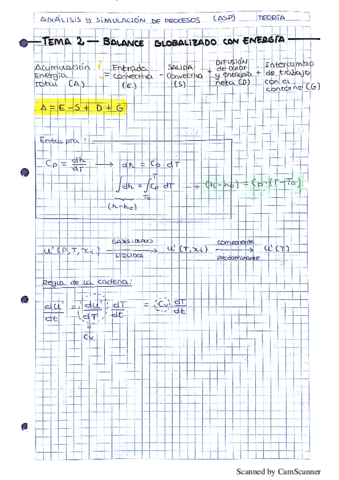 ANÁLISIS Y SIMULACIÓN DE PROCESOS (ASP) TEORÍA
TEMA 2 — BALANCE GLOBALIZADO CON ENERGÍA
Acumulación Energía total (A) = Entrada Convectiva (E) - SALIDA Convectiva (S) + DIFUSIÓN de calor y entalpía neta (D) + Intercambio de trabajo con el contorno (G)
A = E - S + D + G
Entalpía:
Cp = dh/dT → dh = Cp dT
∫dh = ∫Cp dT → (h-h₀) = Cp·(T-T₀)
T
T₀
(h-h₀)
u'(P,T,xi) GASES IDEALES LÍQUIDOS → u'(T,xi) componente predominante → u'(T)
Regla de la cadena:
du'/dt = (du'/dT) dT/dt = (Cv) dT/dt
Cv
Scanned by CamScanner